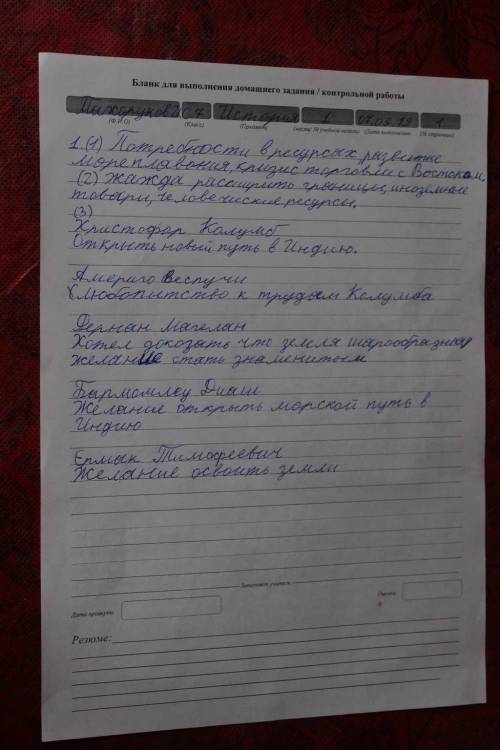 Бланк для выполнения домашнего задания / контрольной работы
С 7 История 1 07.09.19 1
(Ф.И.О) (Класс) (Предмет) (Дата выполнения) (№ страницы)
1.(1) Потребности в ресурсах, развитие
мореплавония, кризис торговли с Востоком.
(2) Жажда расширить границы, иноземные
товары, человечиские ресурсы.
(3)
Христофор Колумб
Открыть новый путь в Индию.
Америго Веспучи
Любопытство к трудам Колумба
Фернан Магелан
Хотел докозать что земля шарообразная,
желание стать знаменитым
Бартоломеу Диаш
Желание открыть морской путь в
Индию
Ермак Тимофеевич
Желание освоить земли
Заполняет учитель
Дата проверки:
Оценка
Резюме: